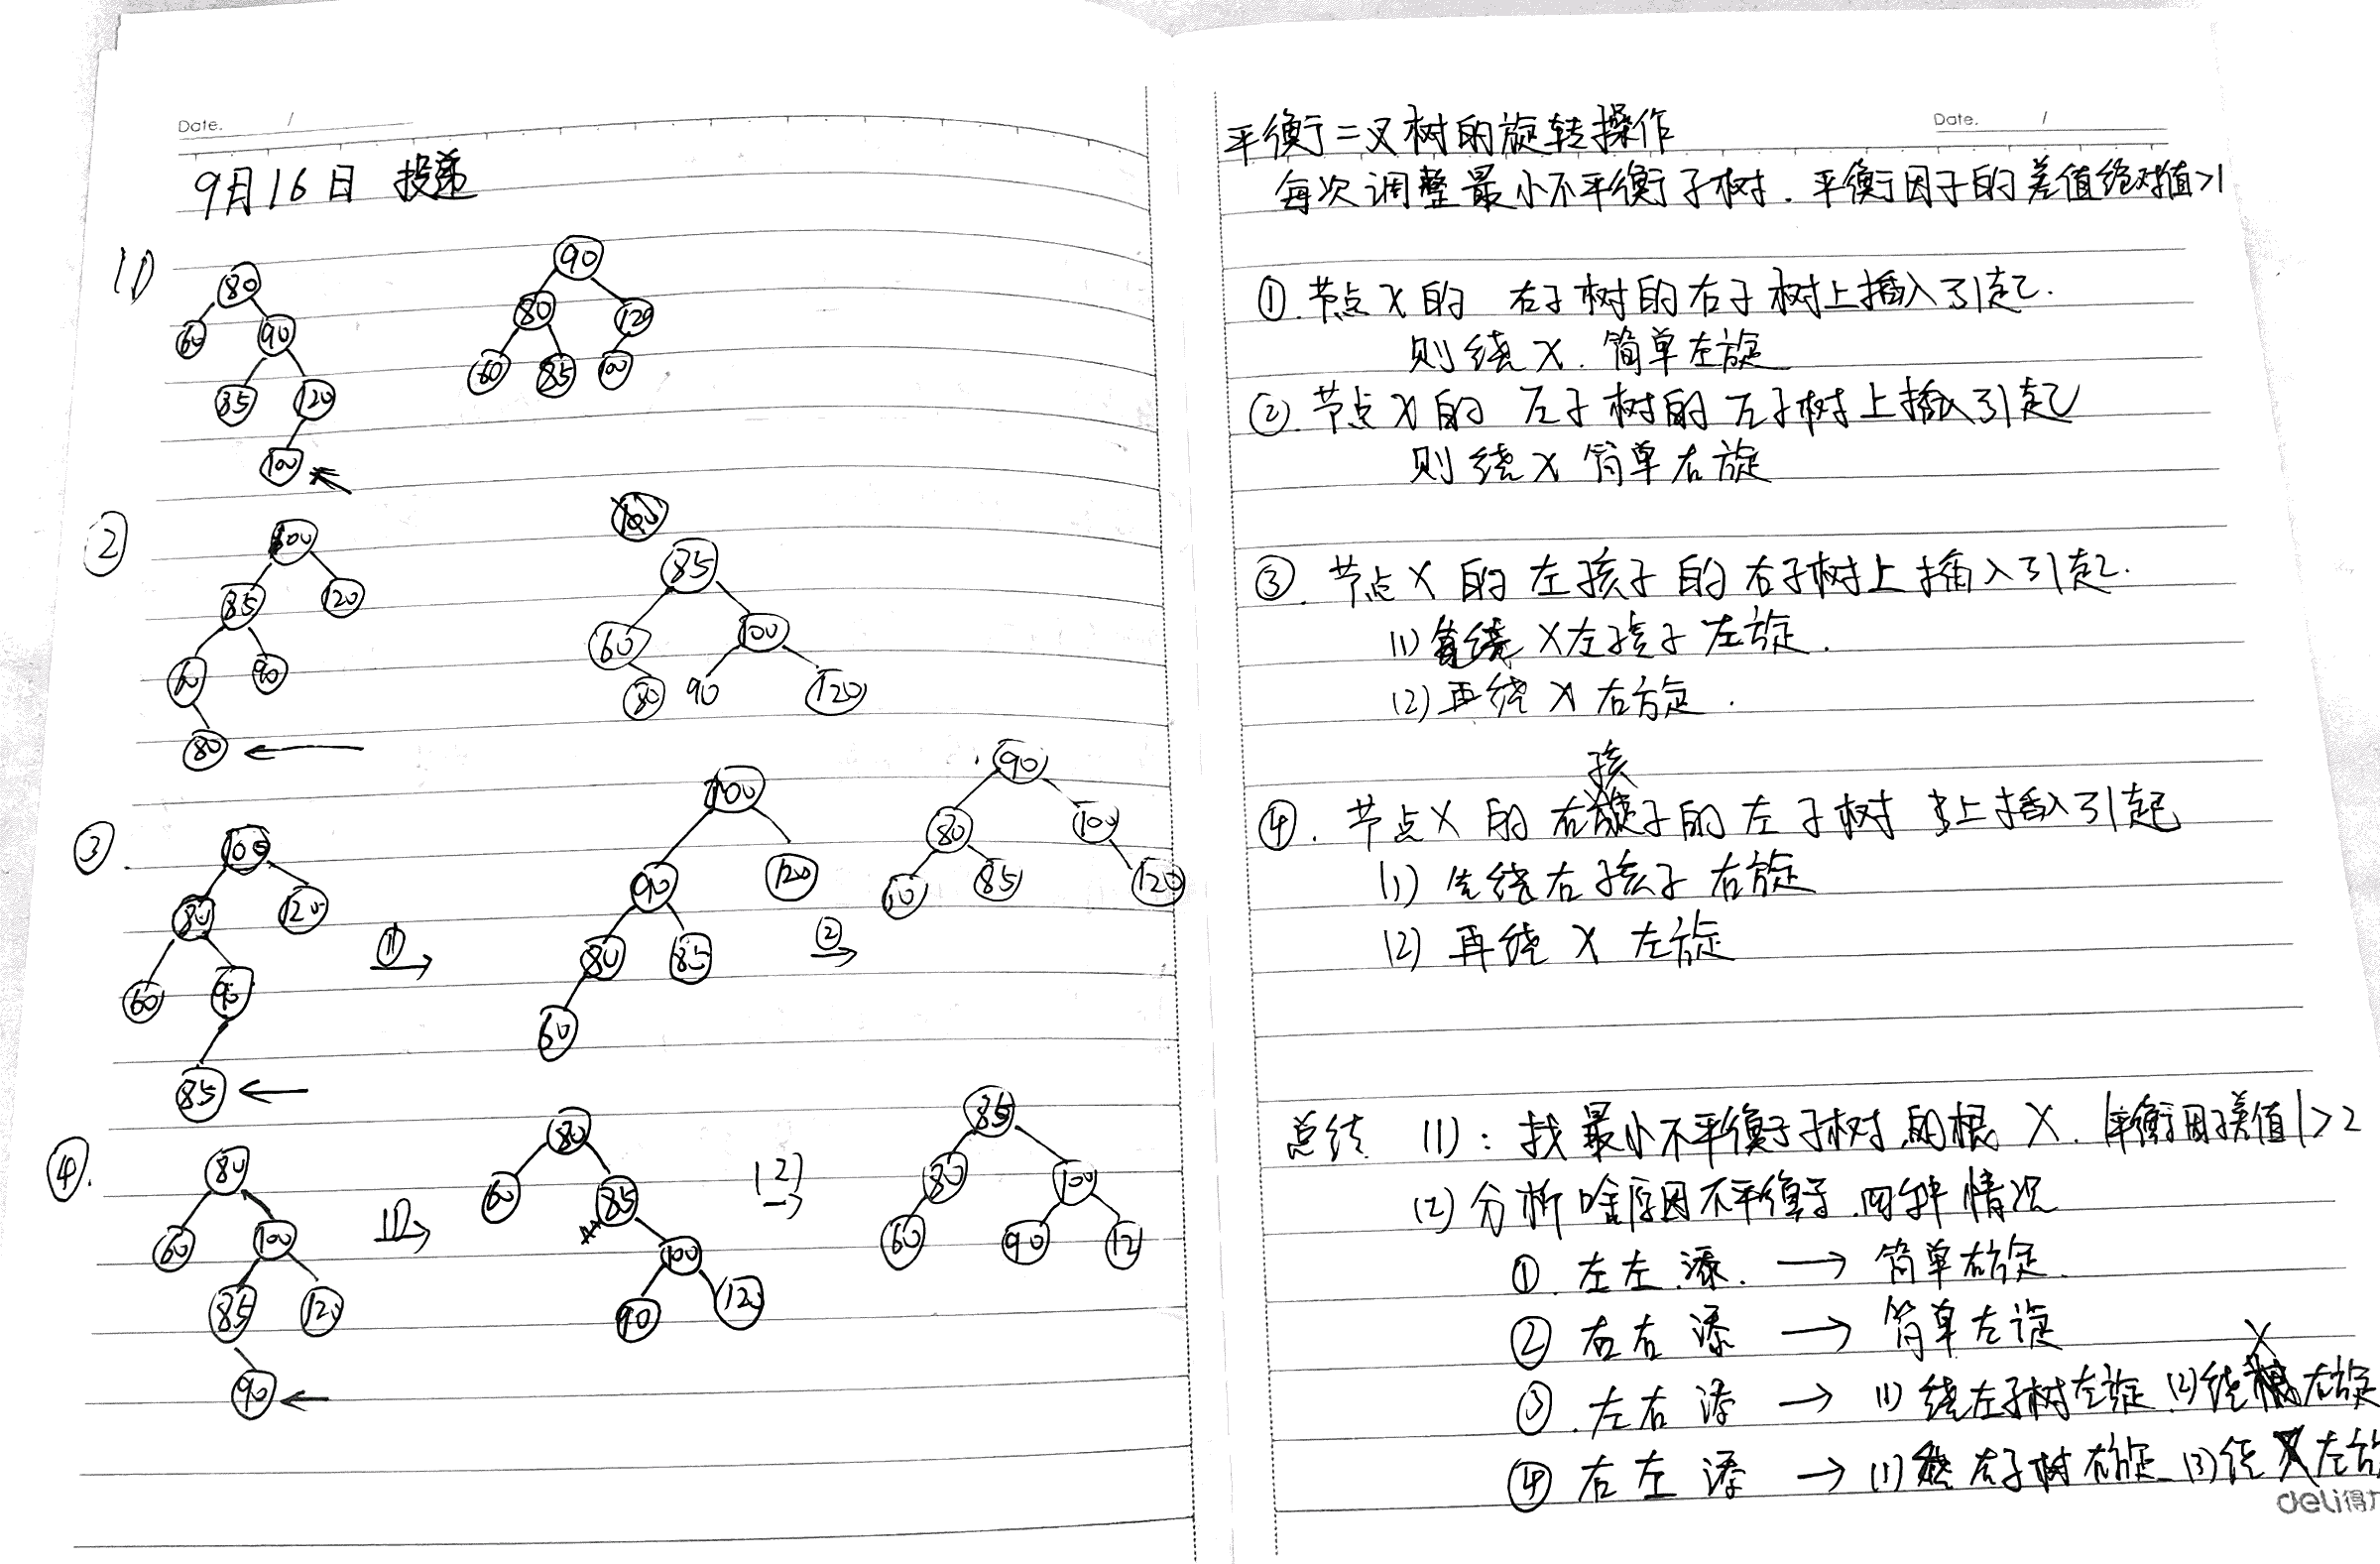 Date. /
9月16日 投递
1)
80
90
60
90
80
120
85
120
60
85
100
100
②
100
85
85
120
60
100
60
90
80
90
120
80
③
100
100
90
80
120
90
120
80
100
60
90
①
80
85
②
60
85
120
85
60
④.
80
80
85
60
100
1)
60
85
(2)
80
100
85
120
100
60
90
12
90
90
120
Date. /
平衡二叉树的旋转操作
每次调整最小不平衡子树. 平衡因子的差值绝对值>1
①. 节点X的 右子树的右子树上插入引起.
则绕X. 简单左旋
②. 节点X的 左子树的左子树上插入引起
则绕X 简单右旋
③. 节点X的左孩子的右子树上插入引起.
(1) 绕X左孩子左旋.
(2) 再绕X右旋.
④. 节点X的右孩子的左子树上插入引起
(1) 先绕右孩子右旋
(2) 再绕X左旋
总结 (1): 找最小不平衡子树的根X. |平衡因子差值|>2
(2) 分析啥原因不平衡. 四种情况
①. 左左添. → 简单右旋.
② 右右添 → 简单左旋
③. 左右添 → (1) 绕左子树左旋 (2) 绕X右旋
④ 右左添 → (1) 绕右子树右旋 (2) 绕X左旋
deli得力